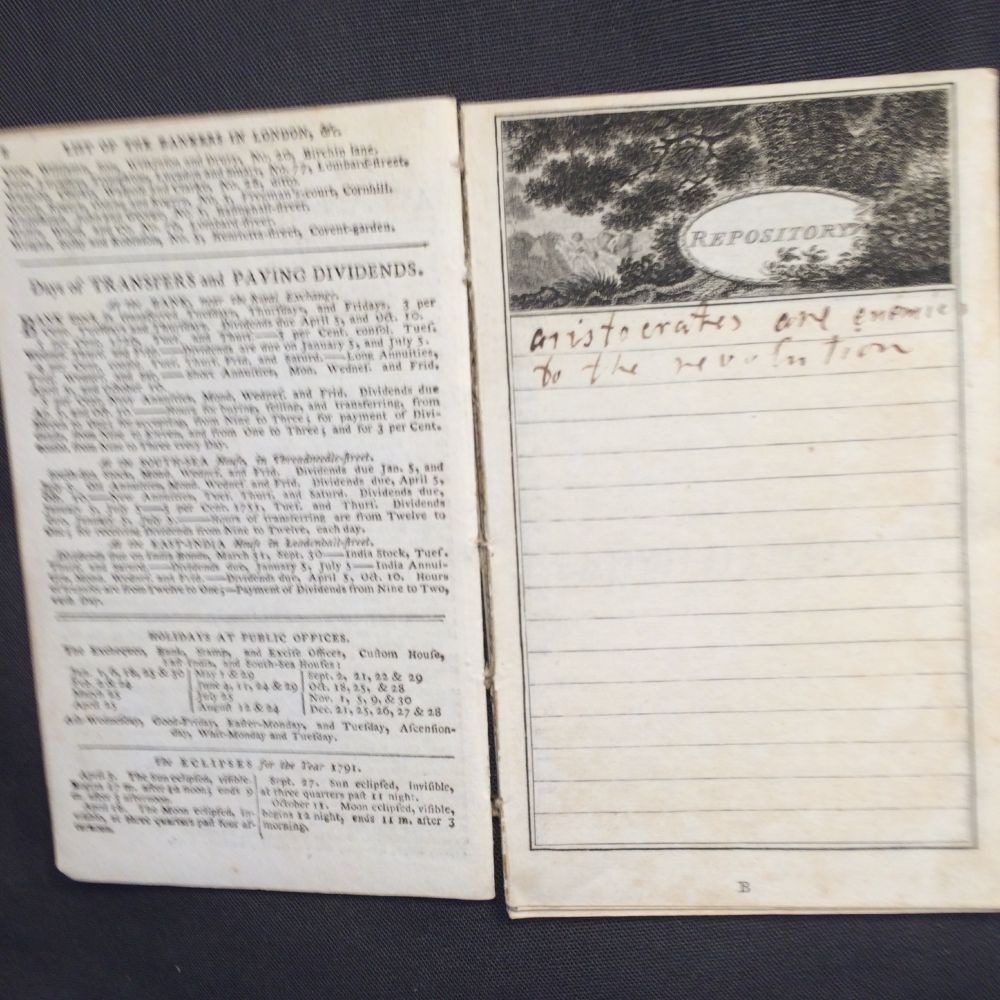 LIST OF THE BANKERS IN LONDON, &c.
No. 20, Birchin lane.
No. 77, Lombard-ſtreet.
No. 28, ditto.
Freeman's-court, Cornhill.
Baſinghall-ſtreet.
Lombard-ſtreet.
No. 5, Henrietta-ſtreet, Covent-garden.
Days of TRANSFERS and PAYING DIVIDENDS.
At the BANK, near the Royal Exchange.
BANK Stock, Tueſdays, Thurſdays, and Fridays. 3 per
and Thurſdays. Dividends due April 5, and Oct. 10.
and Thurſ. per Cent. conſol. Tueſ.
Dividends are due on January 5, and July 5.
Tueſ. Thurſ. Frid. and Saturd. — Long Annuities,
Short Annuities, Mon. Wedneſ. and Frid.
and October 10.
New Annuities, Mond. Wedneſ. and Frid. Dividends due
Hours for buying, ſelling, and transferring, from
from Nine to Three; for payment of Divi-
dends, from Nine to Eleven, and from One to Three; and for 3 per Cent.
from Nine to Three every Day.
At the SOUTH-SEA Houſe, in Threadneedle-ſtreet.
South-Sea Stock, Mond. Wedneſ. and Frid. Dividends due Jan. 5, and
Old Annuities, Mond. Wedneſ. and Frid. Dividends due, April 5,
Oct. 10.—New Annuities, Tueſ. Thurſ. and Saturd. Dividends due,
July 5.—3 per Cent. 1751, Tueſ. and Thurſ. Dividends
due, January 5, July 5.—Hours of transferring are from Twelve to
One, for receiving Dividends from Nine to Twelve, each day.
At the EAST-INDIA Houſe in Leadenhall-ſtreet.
Dividends due on India Bonds, March 31, Sept. 30—India Stock, Tueſ.
Thurſ. and Saturd.—Dividends due, January 5, July 5—India Annui-
ties, Mond. Wedneſ. and Frid.—Dividends due, April 5, Oct. 10. Hours
of transfer are from Twelve to One;—Payment of Dividends from Nine to Two,
each Day.
HOLIDAYS AT PUBLIC OFFICES.
The Exchequer, Bank, Stamp, and Exciſe Offices, Cuſtom Houſe,
Eaſt-India, and South-Sea Houſes:
Jan. 1, 6, 18, 25 & 30
Feb. 2 & 24
March 25
April 25
May 1 & 29
June 4, 11, 24 & 29
July 25
Auguſt 12 & 24
Sept. 2, 21, 22 & 29
Oct. 18, 25, & 28
Nov. 1, 5, 9, & 30
Dec. 21, 25, 26, 27 & 28
Aſh-Wedneſday, Good-Friday, Eaſter-Monday, and Tueſday, Aſcenſion-
day, Whit-Monday and Tueſday.
The ECLIPSES for the Year 1791.
April 3. The Sun eclipſed, viſible.
Begins 27 m. after 12 noon; ends 9
m. after 3 afternoon.
April 18. The Moon eclipſed, in-
viſible, at three quarters paſt four af-
ternoon.
Sept. 27. Sun eclipſed, inviſible,
at three quarters paſt 11 night.
October 11. Moon eclipſed, viſible,
begins 12 night, ends 11 m. after 3
morning.
REPOSITORY
aristocrates are enemies
to the revolution
B